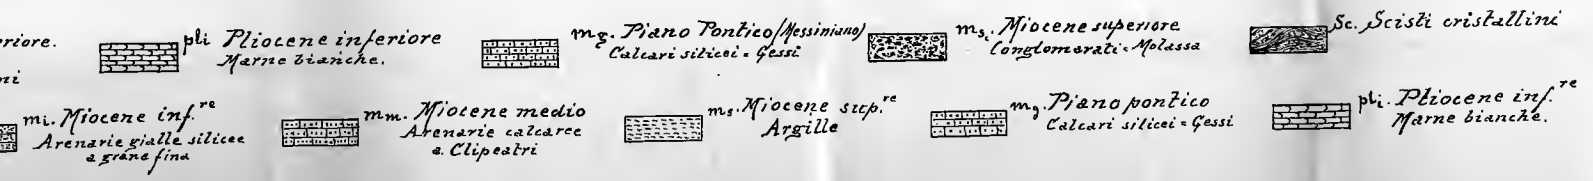 riore.
pli Pliocene inferiore
Marne bianche.
mg. Piano Pontico (Messiniano)
Calcari silicei = Gessi
ms. Miocene superiore
Conglomerati = Molassa
Sc. Scisti cristallini
ni
mi. Miocene inf.re
Arenarie gialle silicee
a grana fina
mm. Miocene medio
Arenarie calcaree
a. Clipeatri
ms. Miocene sup.re
Argille
mg. Piano pontico
Calcari silicei = Gessi
pli. Pliocene inf.re
Marne bianche.